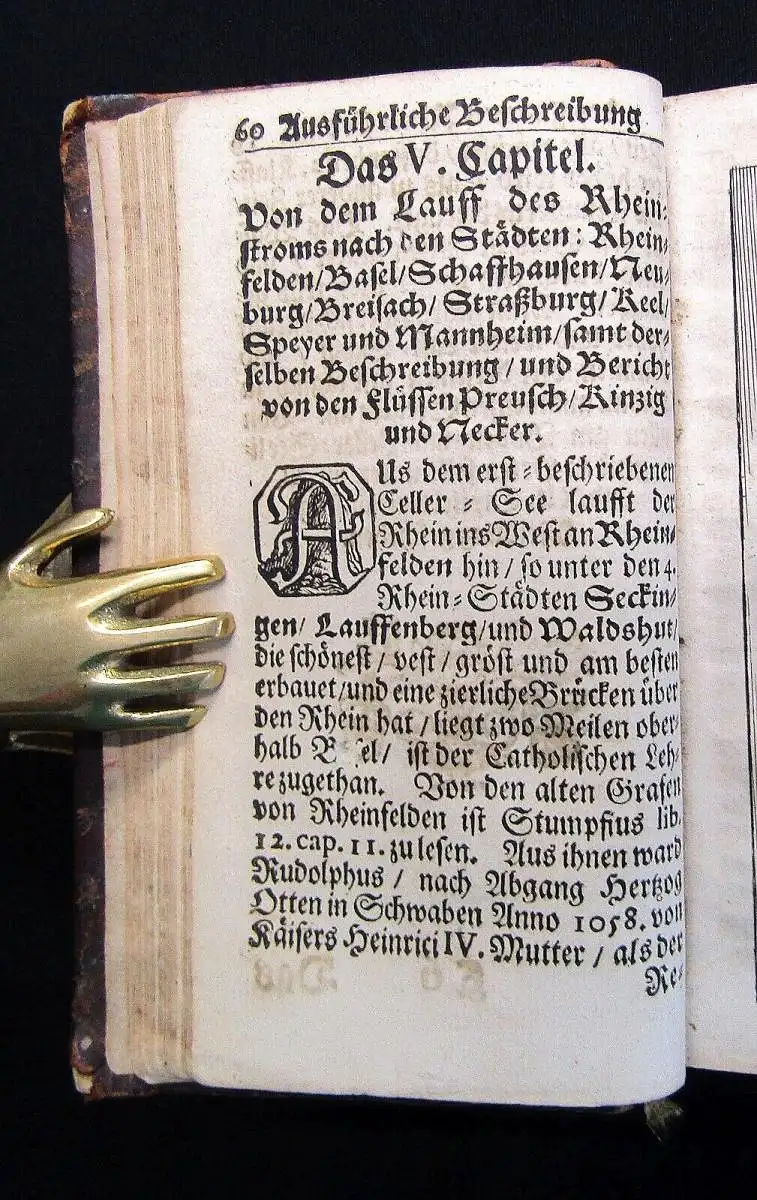 60 Ausführliche Beschreibung
Das V. Capitel.
Von dem Lauff des Rhein-
stroms nach den Städten: Rhein-
felden/Basel/Schaffhausen/Neu-
burg/Breisach/ Straßburg/ Keel/
Speyer und Mannheim/samt der-
selben Beschreibung/und Bericht
von den Flüssen Preusch/Kinzig
und Necker.
AUs dem erst-beschriebenen
Celler-See laufft der
Rhein ins West an Rhein-
felden hin/ so unter den 4.
Rhein-Städten Seckin-
gen/ Lauffenberg/und Waldshut/
die schönest/ vest/ gröst und am besten
erbauet/und eine zierliche Brücken über
den Rhein hat/ liegt zwo Meilen ober-
halb B el/ ist der Catholischen Leh-
re zugethan. Von den alten Grafen
von Rheinfelden ist Stumpfius lib.
12. cap. 11. zu lesen. Aus ihnen ward
Rudolphus/ nach Abgang Hertzog
Otten in Schwaben Anno 1058. von
Käisers Heinrici IV. Mutter/ als der
Re-